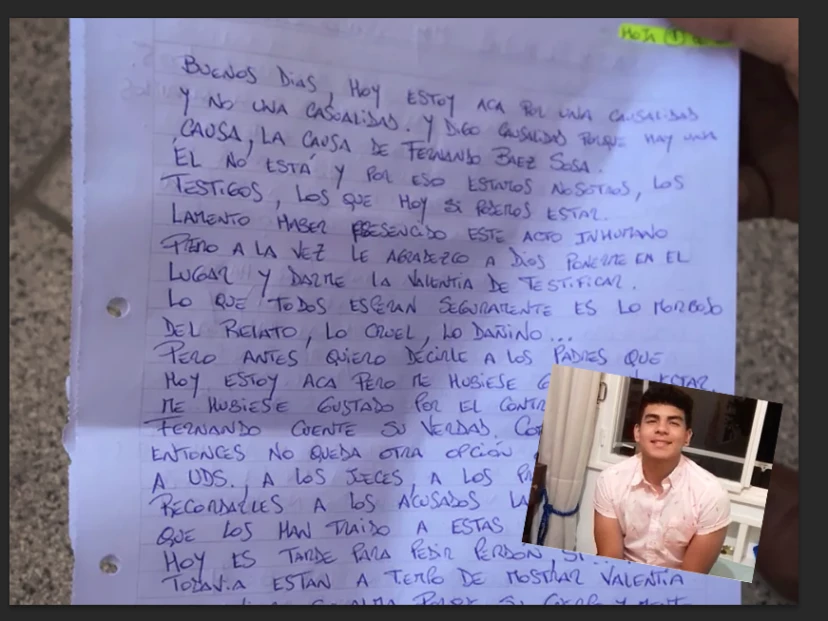 HOJA 1
BUENOS DIAS, HOY ESTOY ACA POR UNA CAUSALIDAD
Y NO UNA CASUALIDAD. Y DIGO CAUSALIDAD PORQUE HAY UNA
CAUSA, LA CAUSA DE FERNANDO BAEZ SOSA.
EL NO ESTÁ Y POR ESO ESTAMOS NOSOTROS, LOS
TESTIGOS, LOS QUE HOY SI PODEMOS ESTAR.
LAMENTO HABER PRESENCIDO ESTE ACTO INHUMANO
PERO A LA VEZ LE AGRADEZCO A DIOS PONERME EN EL
LUGAR Y DARME LA VALENTIA DE TESTIFICAR.
LO QUE TODOS ESPERAN SEGURAMENTE ES LO MORBOSO
DEL RELATO, LO CRUEL, LO DAÑINO...
PERO ANTES QUIERO DECIRLE A LOS PADRES QUE
HOY ESTOY ACA PERO ME HUBIESE ESTAR,
ME HUBIESE GUSTADO POR EL
FERNANDO CUENTE SU VERDAD,
ENTONCES NO QUEDA OTRA OPCIÓN
A UDS., A LOS JUECES, A LOS
RECORDARLES A LOS ACUSADOS
QUE LOS HAN TRAIDO A ESTAS
HOY ES TARDE PARA PEDIR PERDON,
TODAVIA ESTAN A TEMPO DE MOSTRAR VALENTIA